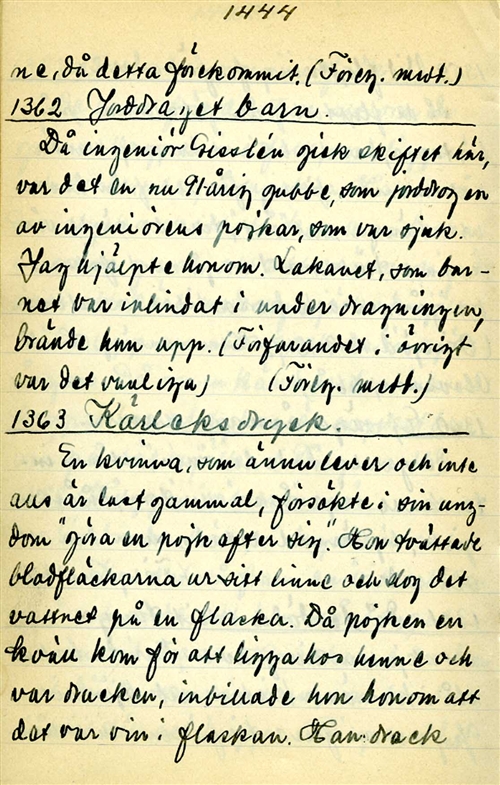 1444
ne, då detta förekommit. (Föreg. medt.)
1362 Jorddraget barn.
Då ingeniör Gisslén gick skiftet här,
var det en nu 91-årig gubbe, som jorddrog en
av ingeniörens pojkar, som var sjuk.
Jag hjälpte honom. Lakanet, som bar-
net var inlindat i under dragningen,
brände han upp. (Förfarandet i övrigt
var det vanliga) (Föreg. medt.)
1363 Kärleksdryck.
En kvinna, som ännu lever och inte
alls är last gammal, försökte i sin ung-
dom "göra en pojk after sig". Hon tvättade
blodfläckarna ur sitt linne och slog det
vattnet på en flaska. Då pojken en
kväll kom för att ligga hos henne och
var drucken, inbillade hon honom att
det var vin i flaskan. Han drack